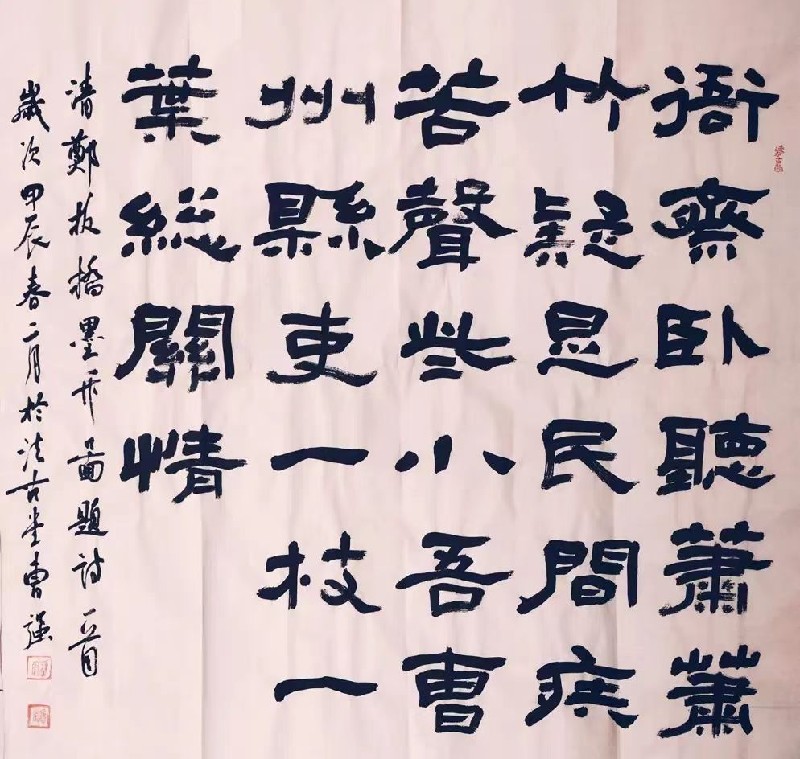 衙齋卧聽蕭蕭
竹疑是民間疾
苦聲些小吾曹
州縣吏一枝一
葉總關情
清鄭板橋墨竹圖題詩一首
歲次甲辰春二月於法古堂曹强